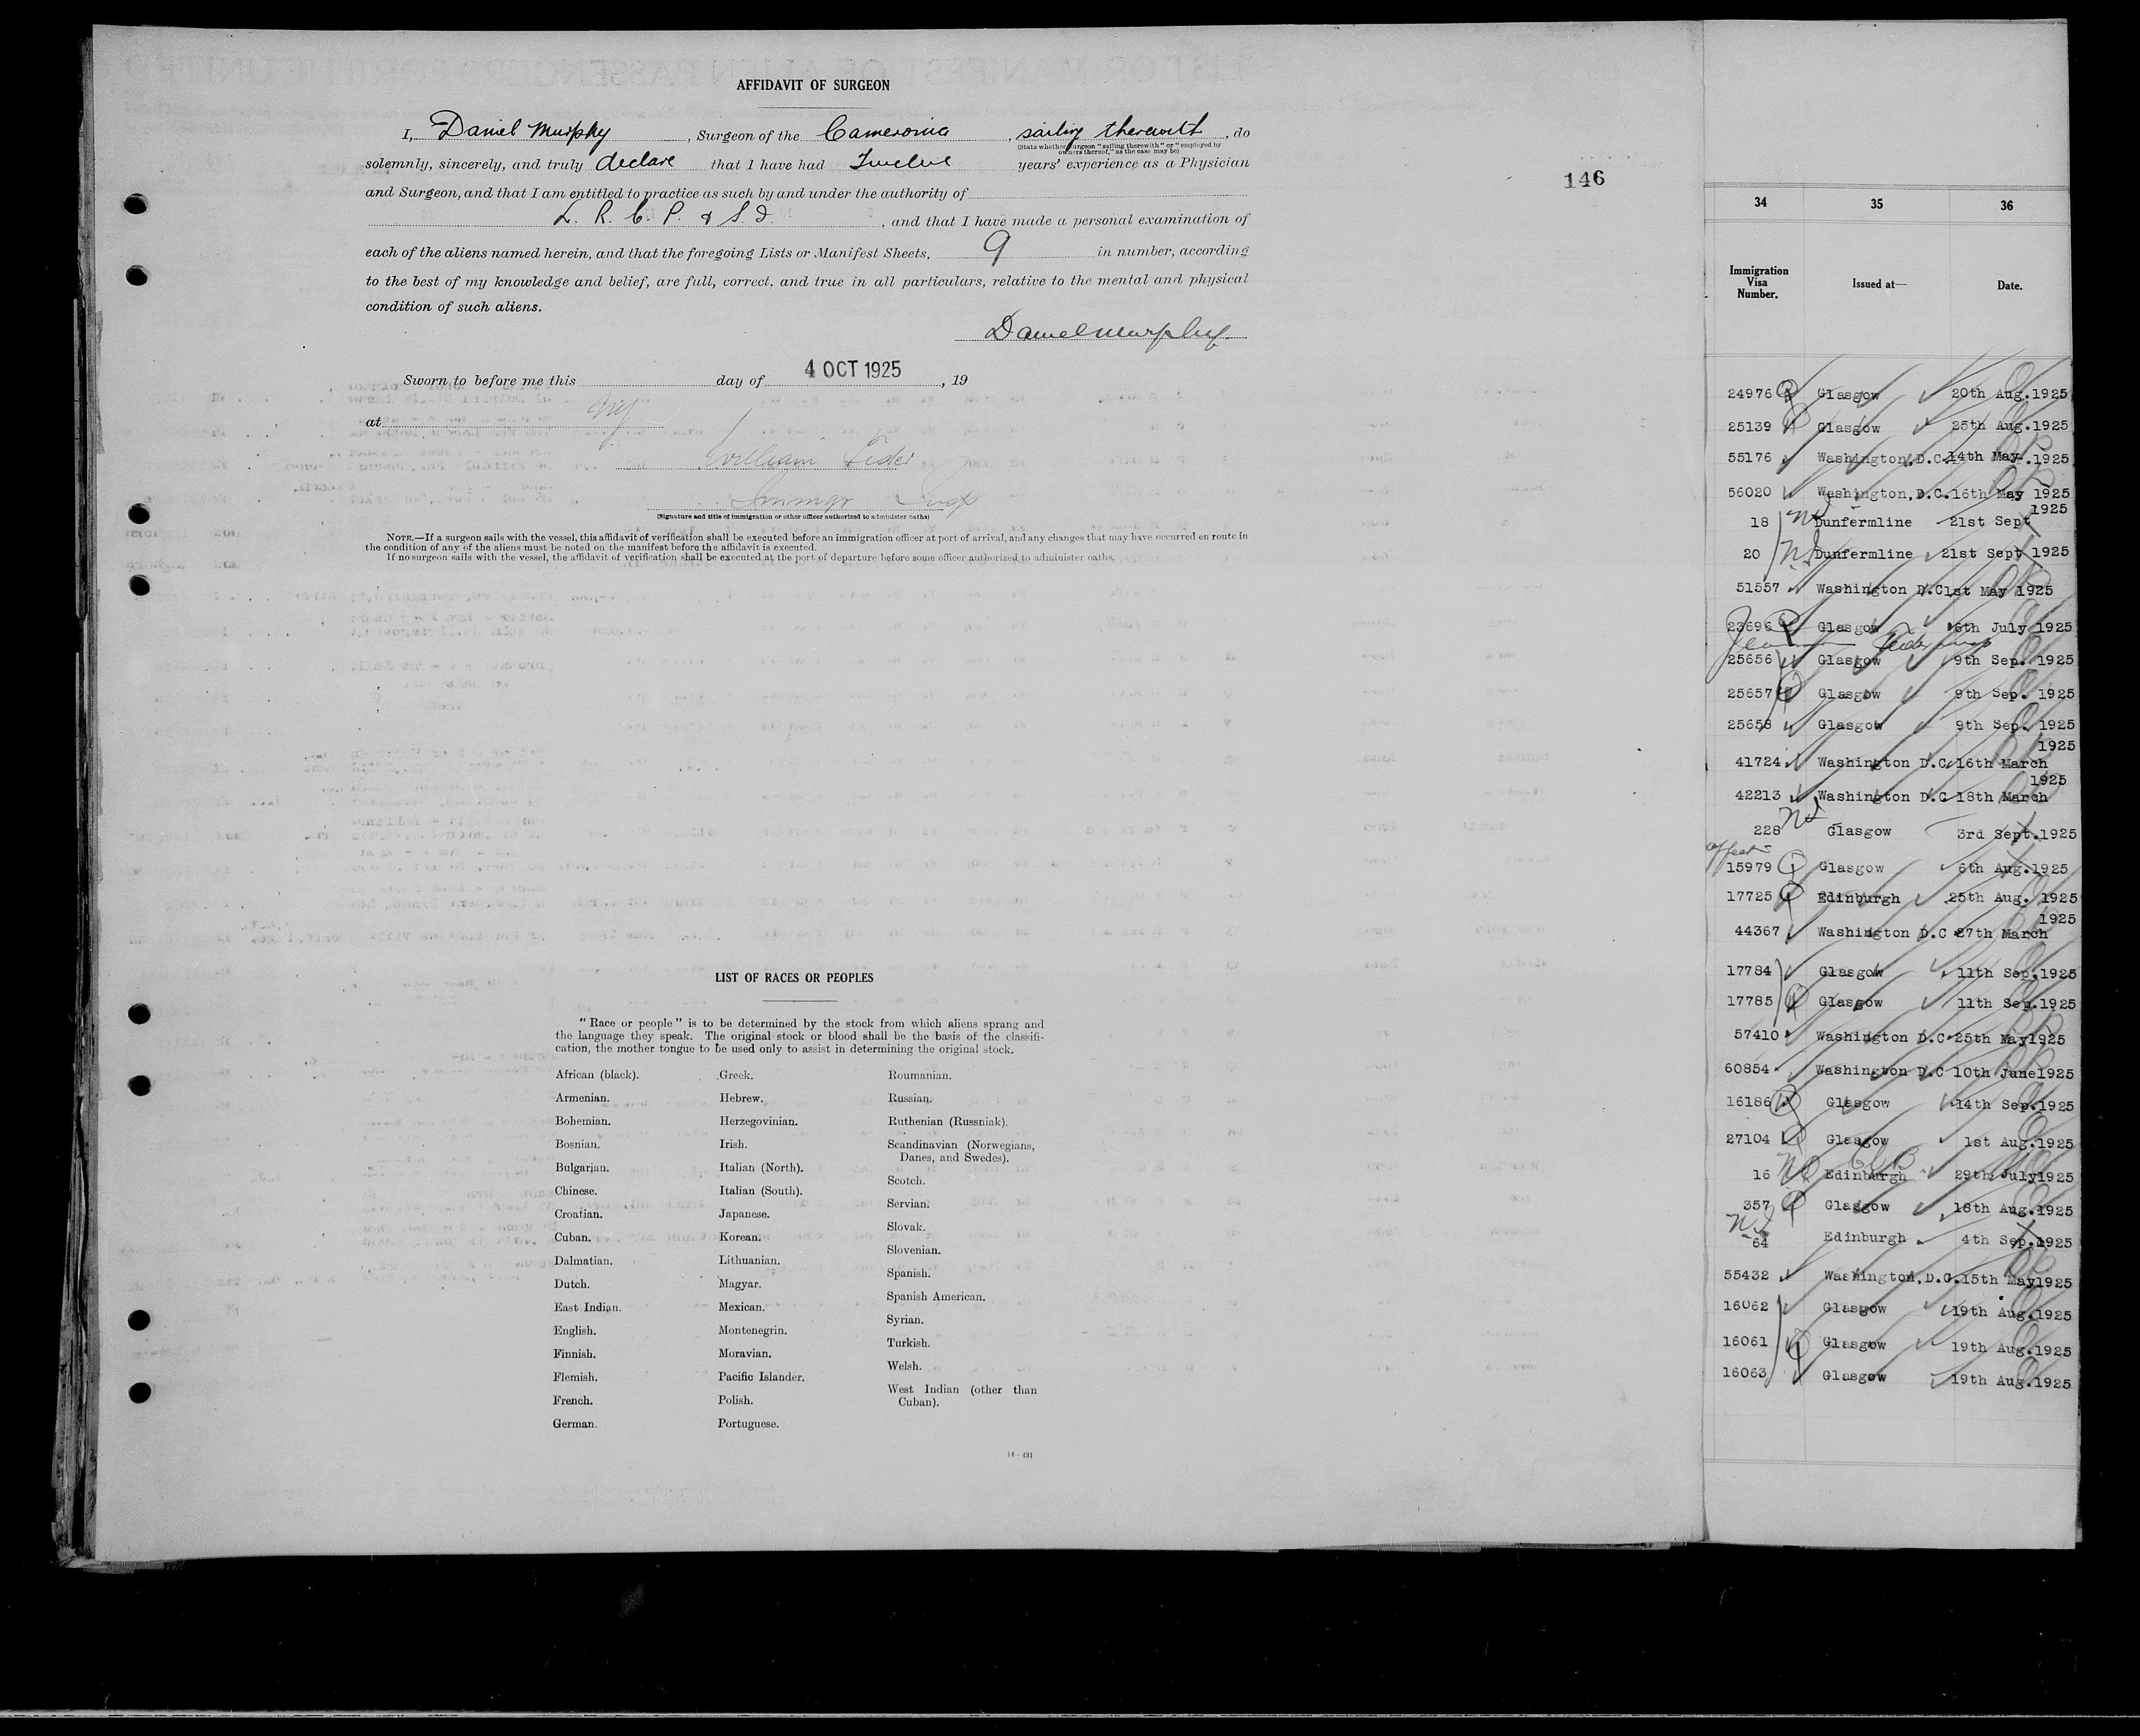 AFFIDAVIT OF SURGEON
I, Daniel Murphy, Surgeon of the Cameronia, sailing therewith, do
(State whether surgeon "sailing therewith" or "employed by
owners thereof," as the case may be)
solemnly, sincerely, and truly declare that I have had Twelve years' experience as a Physician
and Surgeon, and that I am entitled to practice as such by and under the authority of
L. R. C. P. & S. I., and that I have made a personal examination of
each of the aliens named herein, and that the foregoing Lists or Manifest Sheets, 9 in number, according
to the best of my knowledge and belief, are full, correct, and true in all particulars, relative to the mental and physical
condition of such aliens.
Daniel Murphy
Sworn to before me this day of 4 OCT 1925, 19
at NY
William Feder
Immgr Insp
(Signature and title of immigration or other officer authorized to administer oaths)
NOTE.—If a surgeon sails with the vessel, this affidavit of verification shall be executed before an immigration officer at port of arrival, and any changes that may have occurred en route in
the condition of any of the aliens must be noted on the manifest before the affidavit is executed.
If no surgeon sails with the vessel, the affidavit of verification shall be executed at the port of departure before some officer authorized to administer oaths.
LIST OF RACES OR PEOPLES
"Race or people" is to be determined by the stock from which aliens sprang and
the language they speak. The original stock or blood shall be the basis of the classifi-
cation, the mother tongue to be used only to assist in determining the original stock.
African (black).
Armenian.
Bohemian.
Bosnian.
Bulgarian.
Chinese.
Croatian.
Cuban.
Dalmatian.
Dutch.
East Indian.
English.
Finnish.
Flemish.
French.
German.
Greek.
Hebrew.
Herzegovinian.
Irish.
Italian (North).
Italian (South).
Japanese.
Korean.
Lithuanian.
Magyar.
Mexican.
Montenegrin.
Moravian.
Pacific Islander.
Polish.
Portuguese.
Roumanian.
Russian.
Ruthenian (Russniak).
Scandinavian (Norwegians,
Danes, and Swedes).
Scotch.
Servian.
Slovak.
Slovenian.
Spanish.
Spanish American.
Syrian.
Turkish.
Welsh.
West Indian (other than
Cuban).
14—431
146
34 35 36
Immigration
Visa
Number.
Issued at—
Date.
24976 Glasgow 20th Aug.1925
25139 Glasgow 25th Aug.1925
55176 Washington.D.C. 14th May.1925
56020 Washington,D.C. 16th May 1925
18 Dunfermline 21st Sept 1925
20 Dunfermline 21st Sept 1925
51557 Washington D.C 1st May 1925
23696 Glasgow 6th July 1925
25656 Glasgow 9th Sep. 1925
25657 Glasgow 9th Sep. 1925
25658 Glasgow 9th Sep. 1925
41724 Washington D.C. 16th March 1925
42213 Washington D.C 18th March 1925
228 Glasgow 3rd Sept.1925
15979 Glasgow 6th Aug.1925
17725 Edinburgh 25th Aug. 1925
44367 Washington D.C 27th March 1925
17784 Glasgow 11th Sep.1925
17785 Glasgow 11th Sep.1925
57410 Washington D.C 25th May1925
60854 Washington D.C 10th June1925
16186 Glasgow 14th Sep.1925
27104 Glasgow 1st Aug.1925
16 Edinburgh 29th July1925
357 Glasgow 18th Aug.1925
64 Edinburgh 4th Sep.1925
55432 Washington,D.C. 15th May1925
16062 Glasgow 19th Aug.1925
16061 Glasgow 19th Aug.1925
16063 Glasgow 19th Aug.1925